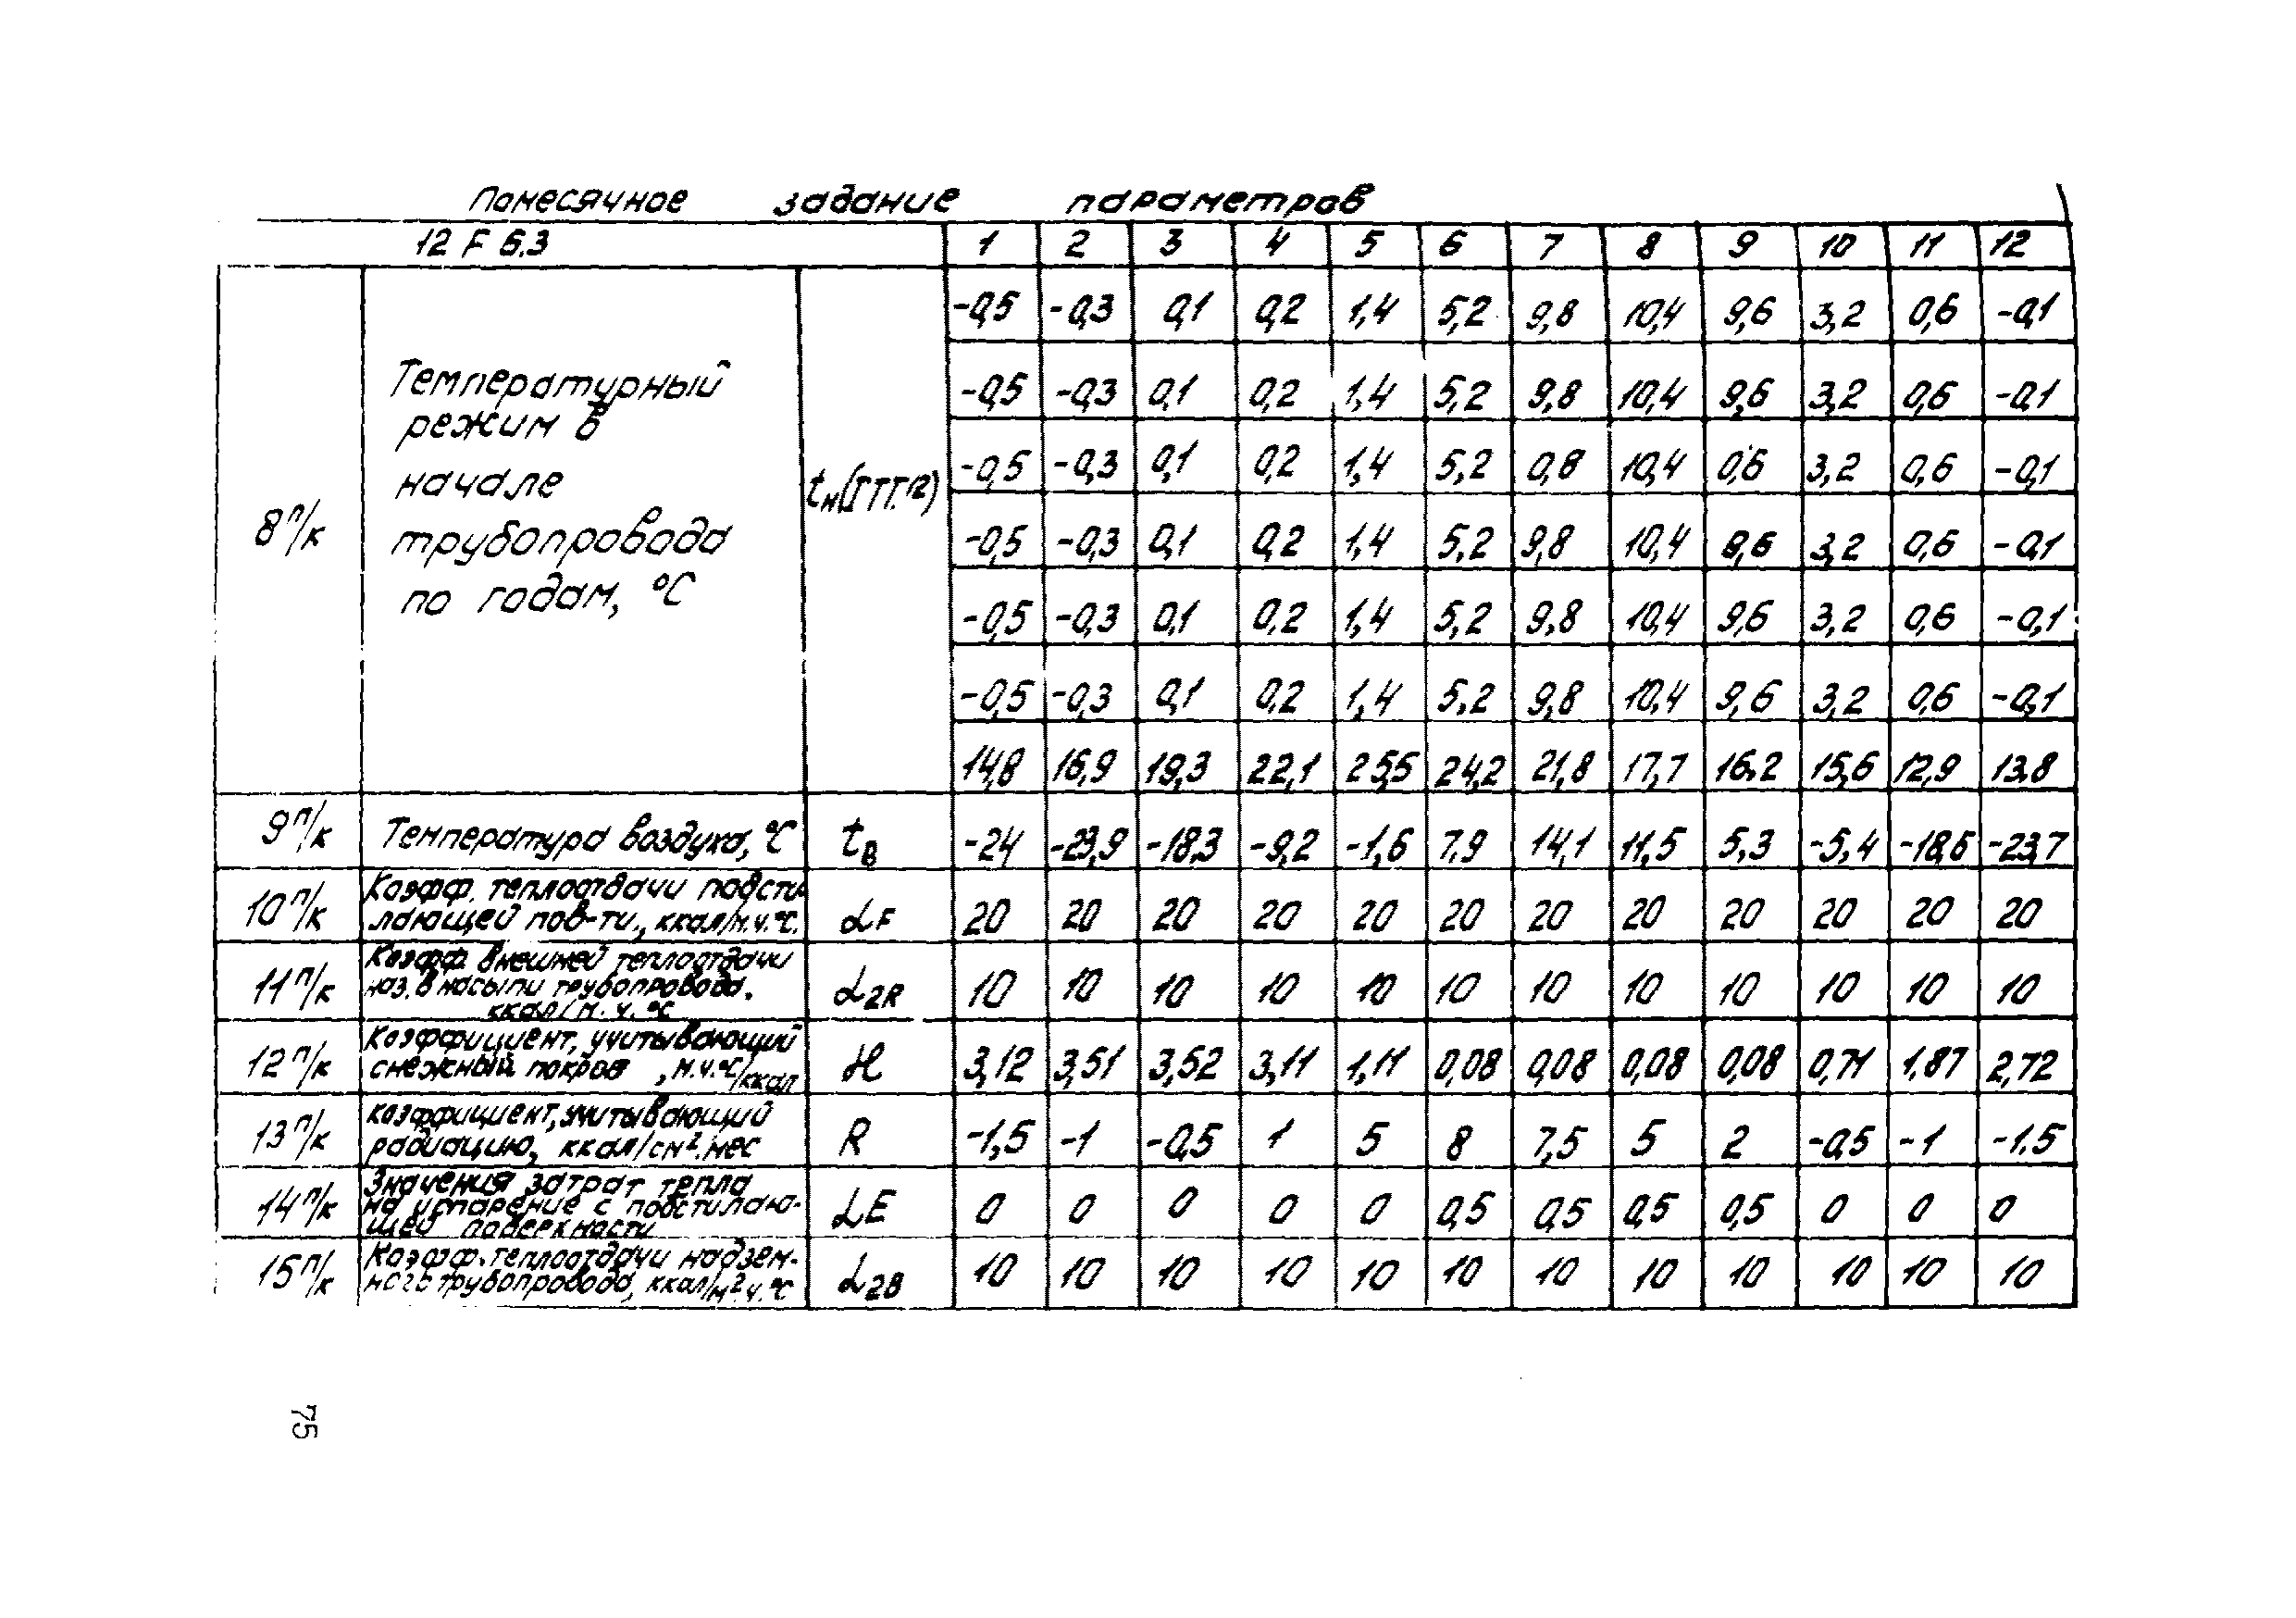 Помесячное задание параметров
12 F 6.3 1 2 3 4 5 6 7 8 9 10 11 12
-0,5 -0,3 0,1 0,2 1,4 5,2 9,8 10,4 9,6 3,2 0,6 -0,1
Температурный
режим в
начале
трубопровода
по годам, °С
8 п/к
-0,5 -0,3 0,1 0,2 1,4 5,2 9,8 10,4 9,6 3,2 0,6 -0,1
-0,5 -0,3 0,1 0,2 1,4 5,2 0,8 10,4 0,6 3,2 0,6 -0,1
-0,5 -0,3 0,1 0,2 1,4 5,2 9,8 10,4 9,6 3,2 0,6 -0,1
-0,5 -0,3 0,1 0,2 1,4 5,2 9,8 10,4 9,6 3,2 0,6 -0,1
-0,5 -0,3 0,1 0,2 1,4 5,2 9,8 10,4 9,6 3,2 0,6 -0,1
14,8 16,9 19,3 22,1 25,5 24,2 21,8 17,7 16,2 15,6 12,9 13,8
9 п/к Температура воздуха, °С tв -24 -23,9 -18,3 -9,2 -1,6 7,9 14,1 11,5 5,3 -5,4 -18,6 -23,7
Коэфф. теплоотдачи подсти-
10 п/к лающей пов-ти, ккал/м.ч.°С. αF 20 20 20 20 20 20 20 20 20 20 20 20
Коэфф. внешней теплоотдачи
11 п/к наз. в насыпи трубопровода. α2R 10 10 10 10 10 10 10 10 10 10 10 10
ккал/м.ч.°С
Коэффициент, учитывающий
12 п/к снежный покров , м.ч.°С/ккал H 3,12 3,51 3,52 3,11 1,11 0,08 0,08 0,08 0,08 0,71 1,87 2,72
коэффициент, учитывающий
13 п/к радиацию, ккал/см².мес R -1,5 -1 -0,5 1 5 8 7,5 5 2 -0,5 -1 -1.5
Значения затрат тепла
14 п/к на испарение с подстилаю- LE 0 0 0 0 0 0,5 0,5 0,5 0,5 0 0 0
щей поверхности
Коэфф. теплоотдачи надзем-
15 п/к ного трубопровода, ккал/м².ч.°С α2В 10 10 10 10 10 10 10 10 10 10 10 10
75